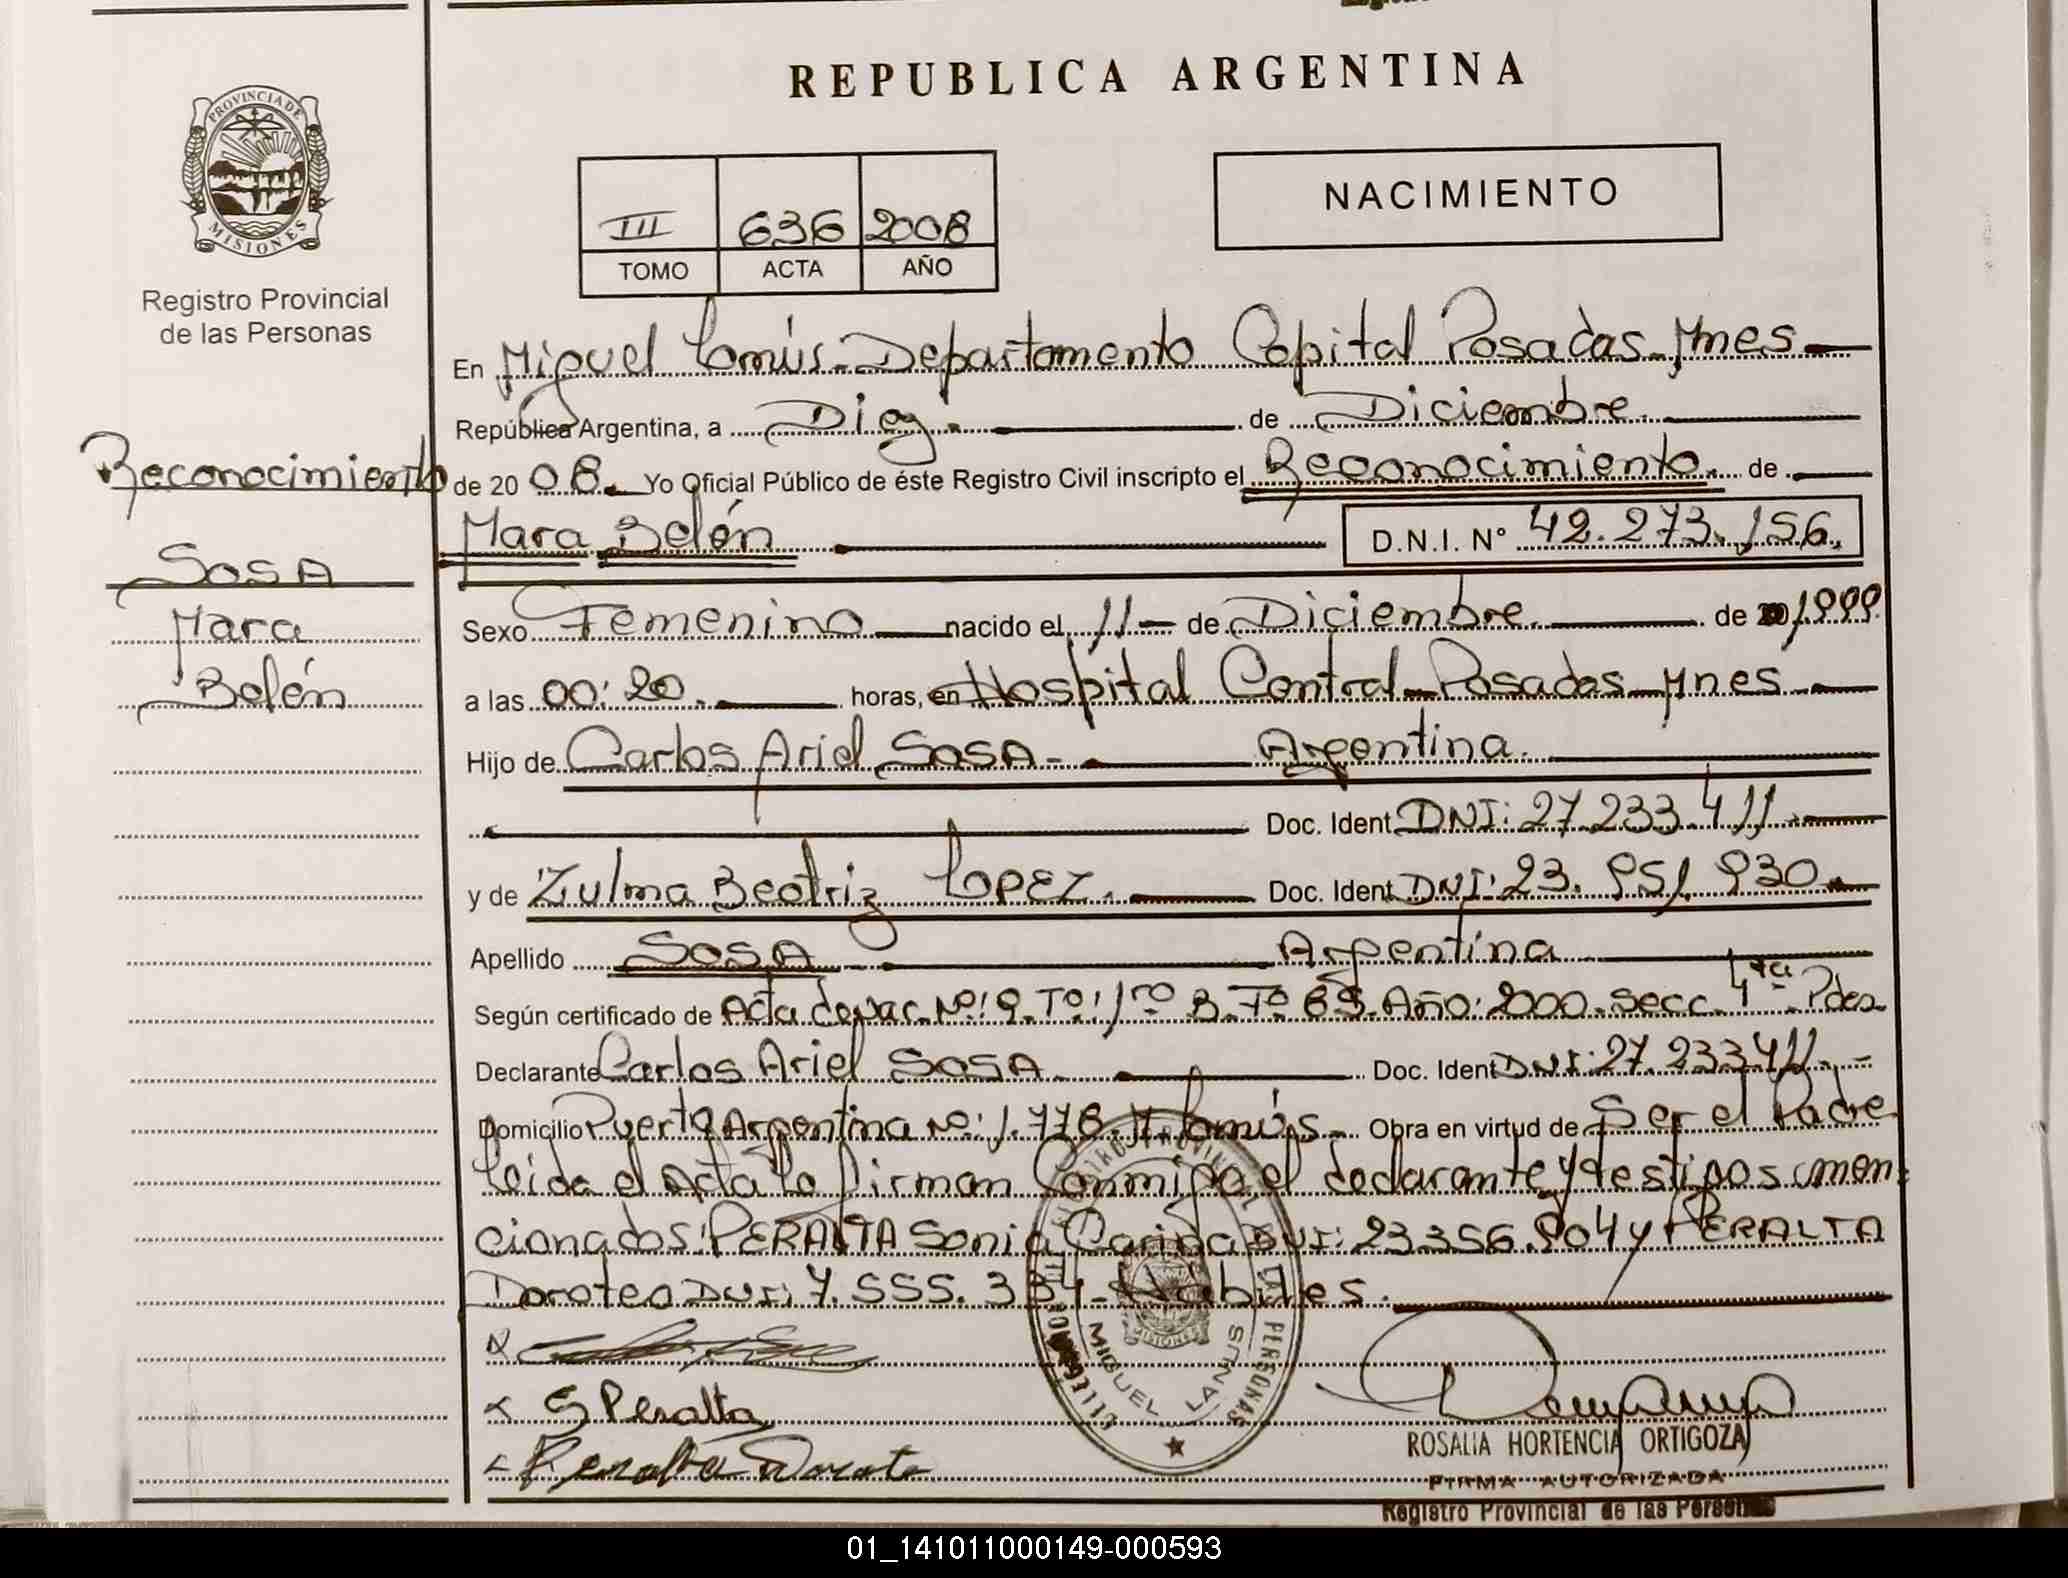 REPUBLICA ARGENTINA
PROVINCIA DE
MISIONES
Registro Provincial
de las Personas
III 636 2008
TOMO ACTA AÑO
NACIMIENTO
En Miguel Lanús - Departamento Capital Posadas - Mnes
República Argentina, a Diez. de Diciembre.
de 2008. Yo Oficial Público de éste Registro Civil inscripto el Reconocimiento. de
Mara Belén
D.N.I. N° 42.273.156.
Reconocimiento
SOSA
Mara
Belén
Sexo Femenino nacido el 11 - de Diciembre. de 1999.
a las 00:20. horas, en Hospital Central - Posadas - Mnes -
Hijo de Carlos Ariel SOSA - Argentina.
Doc. Ident. DNI: 27.233.411
y de Zulma Beatriz LOPEZ. Doc. Ident. DNI: 23.951.930.
Apellido SOSA - Argentina
Según certificado de Acta de Nac. Nº: 9. Tº: 1ro B. Fº 69. Año: 2000. Secc. 4ta Pdas
Declarante Carlos Ariel SOSA Doc. Ident DNI: 27.233.411. -
Domicilio Puerto Argentina Nº: 1.778 M. Lanús - Obra en virtud de Ser el Padre
Leida el Acta la firman Conmigo el declarante y testigos men
cionados: PERALTA Sonia Carina DNI: 23.356.904 y PERALTA
Doroteo DNI: 7.555.334 - Hábiles.
S Peralta
Peralta Doroteo
MIGUEL LANUS
MISIONES
ROSALIA HORTENCIA ORTIGOZA
FIRMA AUTORIZADA
Registro Provincial de las Personas
01_141011000149-000593